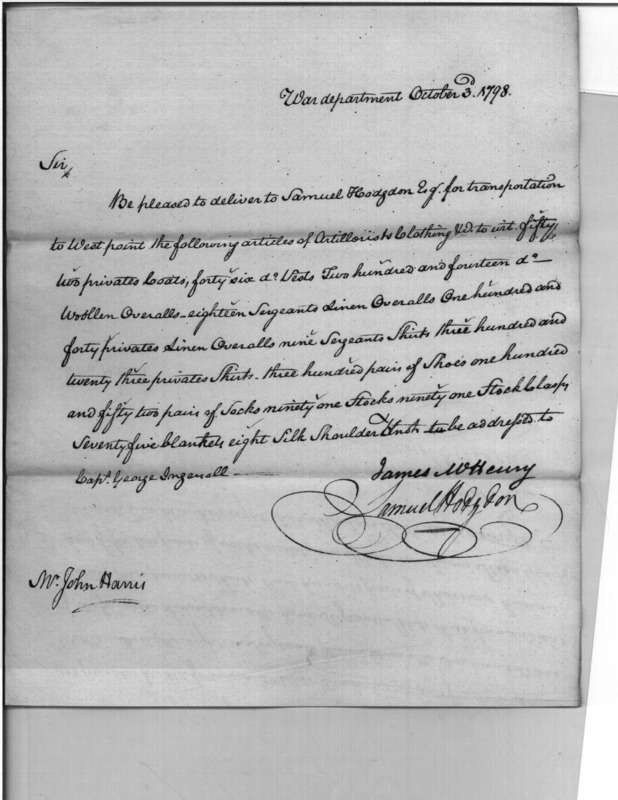 War department October 3d. 1798.
Sir,
Be pleased to deliver to Samuel Hodgdon Esq. for transportation
to West point the following articles of Artillerists Clothing &c. to wit. fifty
two privates Coats, forty six do. Vests Two hundred and fourteen do
Woollen Overalls - eighteen Sergeants Linen Overalls One hundred and
forty privates Linen Overalls nine Sergeants Shirts three hundred and
twenty three privates Shirts - three hundred pairs of Shoes one hundred
and fifty two pairs of Socks ninety one Stocks ninety one Stock Clasps
Seventy five blankets eight Silk Shoulder Knots to be addressed to
Capt. George Ingersoll -
James McHenry
Samuel Hodgdon
Mr. John Harris